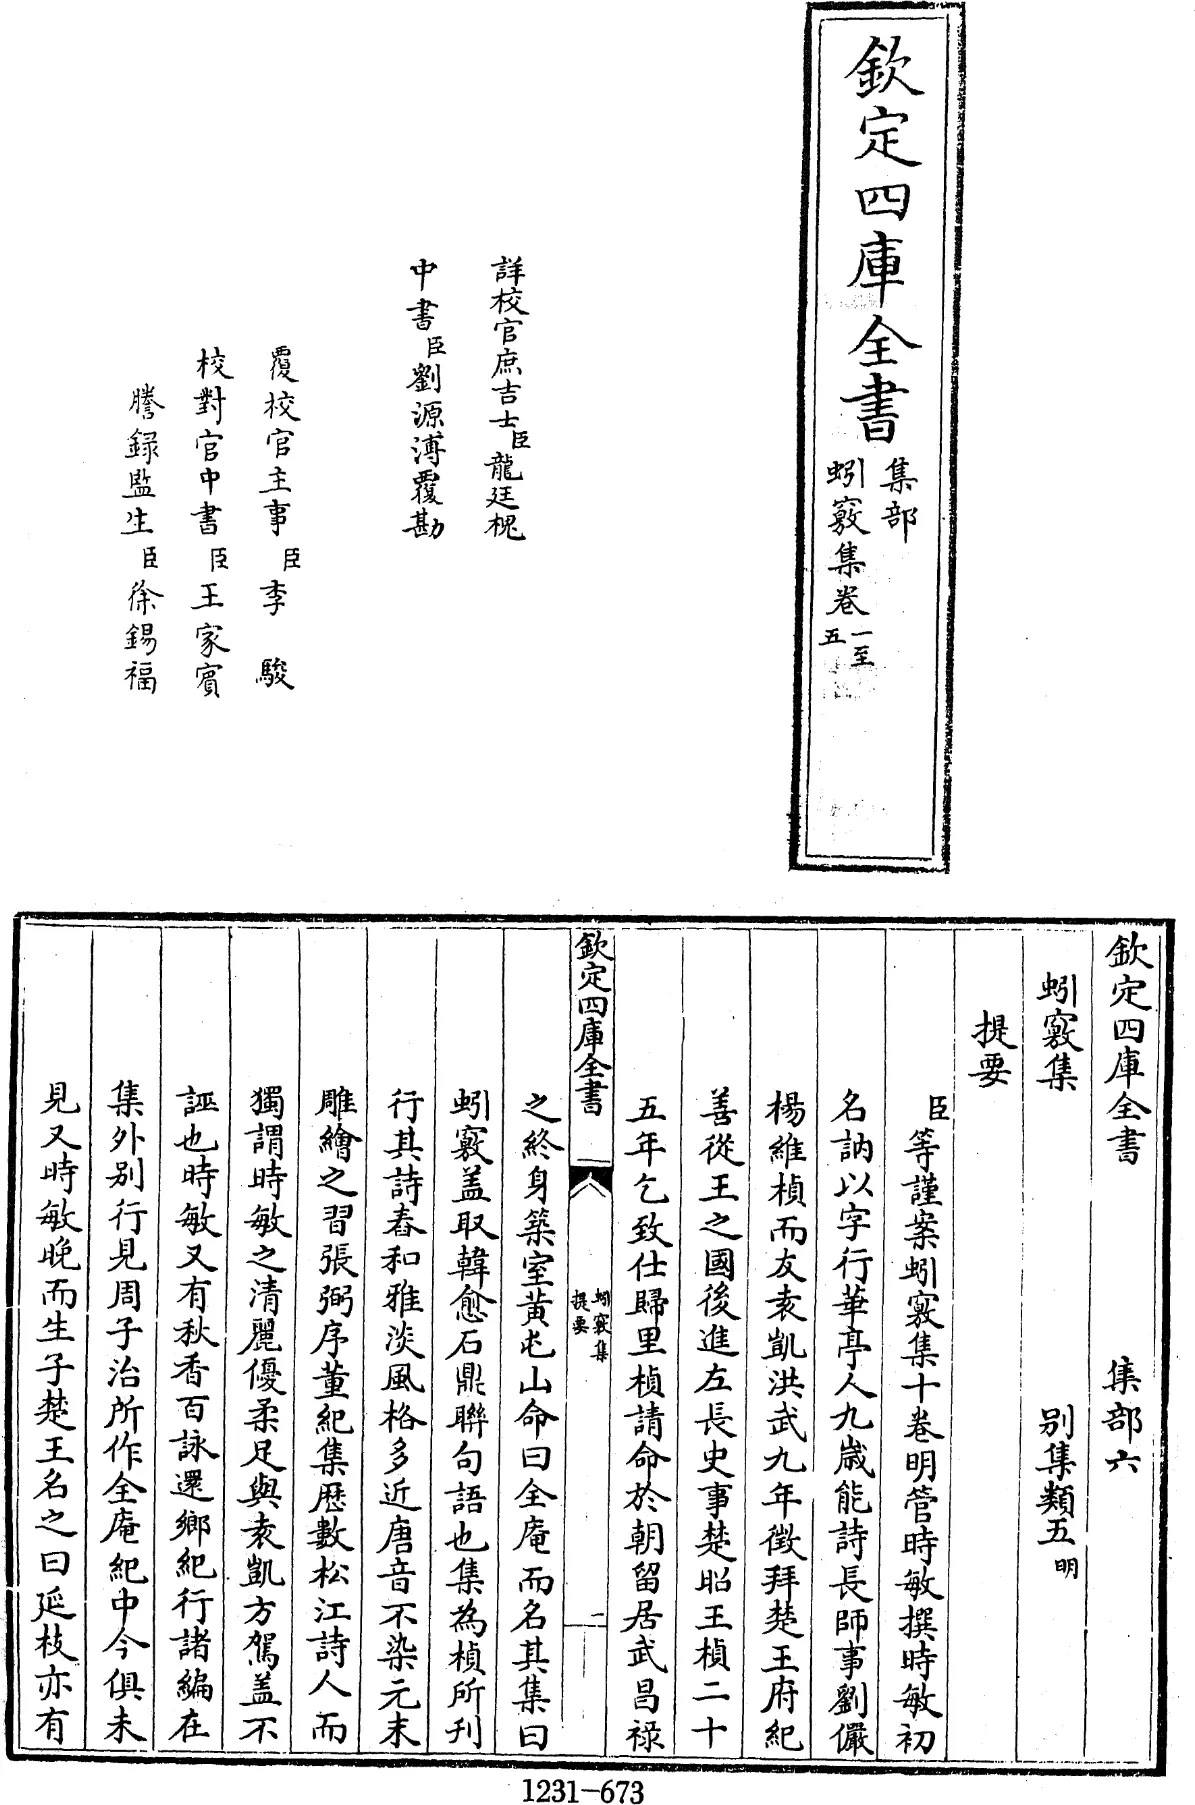 欽定四庫全書
集部
蚓竅集卷一至五
詳校官庶吉士臣龍廷槐
中書臣劉源溥覆勘
覆校官主事臣李駿
校對官中書臣王家賓
謄録監生臣徐錫福
欽定四庫全書 集部六
蚓竅集 別集類五明
提要
臣等謹案蚓竅集十卷明管時敏撰時敏初
名訥以字行華亭人九歲能詩長師事劉儼
楊維楨而友袁凱洪武九年徵拜楚王府紀
善從王之國後進左長史事楚昭王楨二十
五年乞致仕歸里楨請命於朝留居武昌祿
欽定四庫全書
蚓竅集
提要
二
之終身築室黃屯山命曰全庵而名其集曰
蚓竅盖取韓愈石鼎聯句語也集為楨所刊
行其詩舂和雅淡風格多近唐音不染元末
雕繪之習張弼序董紀集歷數松江詩人而
獨謂時敏之清麗優柔足與袁凱方駕盖不
誣也時敏又有秋香百詠還鄉紀行諸編在
集外別行見周子治所作全庵紀中今俱未
見又時敏晚而生子楚王名之曰延枝亦有
1231-673